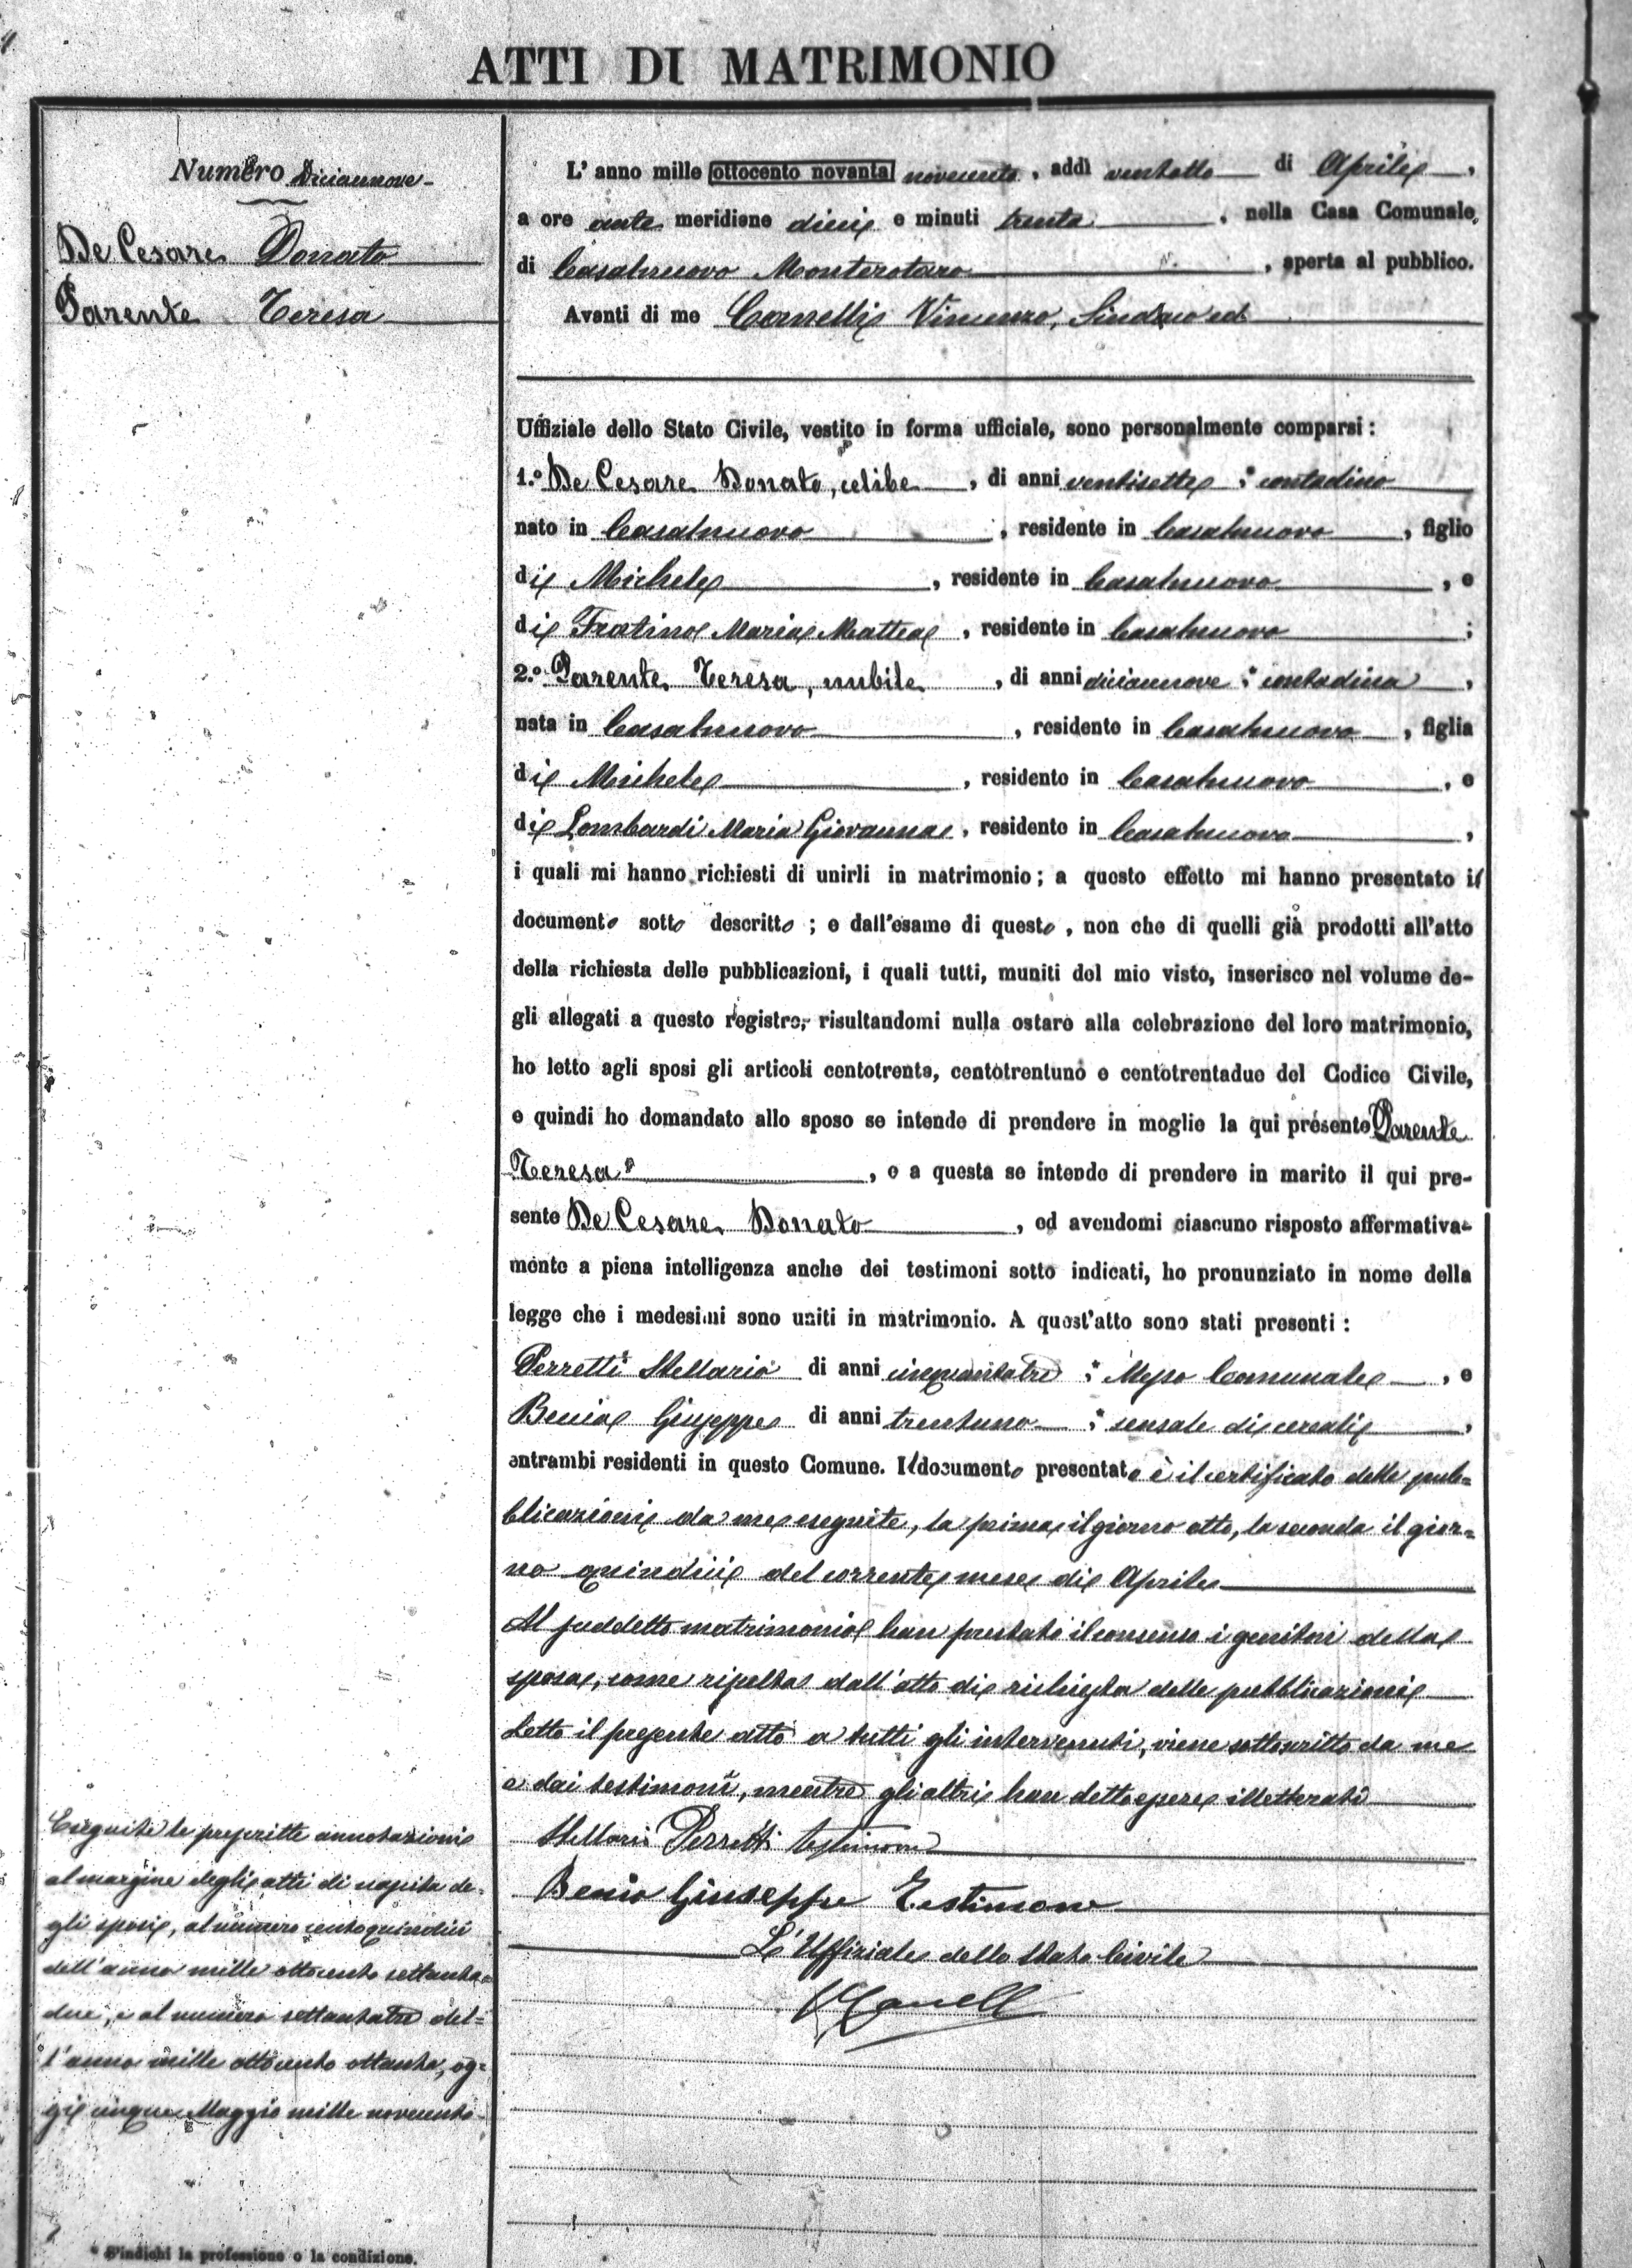 ATTI DI MATRIMONIO
Numero Diciannove
De Cesare Donato
Parente Teresa
L'anno mille ottocento novanta novecento, addì ventotto di Aprile,
a ore ante meridiane dieci e minuti trenta, nella Casa Comunale
di Casalnuovo Monterotaro, aperta al pubblico.
Avanti di me Canelli Vincenzo, Sindaco ed
Uffiziale dello Stato Civile, vestito in forma ufficiale, sono personalmente comparsi:
1.° De Cesare Donato, celibe, di anni ventisette * contadino
nato in Casalnuovo, residente in Casalnuovo, figlio
di Michele, residente in Casalnuovo, e
di Fratino Maria Mattea, residente in Casalnuovo;
2.° Parente Teresa, nubile, di anni diciannove * contadina,
nata in Casalnuovo, residente in Casalnuovo, figlia
di Michele, residente in Casalnuovo, e
di Lombardi Maria Giovanna, residente in Casalnuovo,
i quali mi hanno richiesti di unirli in matrimonio; a questo effetto mi hanno presentato il
documento sotto descritto; e dall'esame di questo, non che di quelli già prodotti all'atto
della richiesta delle pubblicazioni, i quali tutti, muniti del mio visto, inserisco nel volume de-
gli allegati a questo registro, risultandomi nulla ostare alla celebrazione del loro matrimonio,
ho letto agli sposi gli articoli centotrenta, centotrentuno e centotrentadue del Codice Civile,
e quindi ho domandato allo sposo se intende di prendere in moglie la qui presente Parente
Teresa, e a questa se intende di prendere in marito il qui pre-
sente De Cesare Donato, ed avendomi ciascuno risposto affermativa-
mente a piena intelligenza anche dei testimoni sotto indicati, ho pronunziato in nome della
legge che i medesimi sono uniti in matrimonio. A quest'atto sono stati presenti:
Perretti Stellario di anni cinquantatre * Messo Comunale, e
Benia Giuseppe di anni trentuno * sensale di cereali,
entrambi residenti in questo Comune. Il documento presentato è il certificato delle pub=
blicazioni da me eseguite, la prima il giorno otto, la seconda il gior=
no quindici del corrente mese di Aprile
Al suddetto matrimonio han prestato il consenso i genitori della
sposa, come risulta dall'atto di richiesta delle pubblicazioni
Letto il presente atto a tutti gli intervenuti, viene sottoscritto da me
e dai testimoni, mentre gli altri han detto essere illetterati
Stellario Perretti testimone
Benia Giuseppe Testimone
L'Uffiziale dello Stato Civile
VCanelli
Eseguite le prescritte annotazioni
al margine degli atti di nascita de=
gli sposi, al numero centoquindici
dell'anno mille ottocento settanta=
due, e al numero settantatre del=
l'anno mille ottocento ottanta, og=
gi cinque Maggio mille novecento
* S'indichi la professione o la condizione.